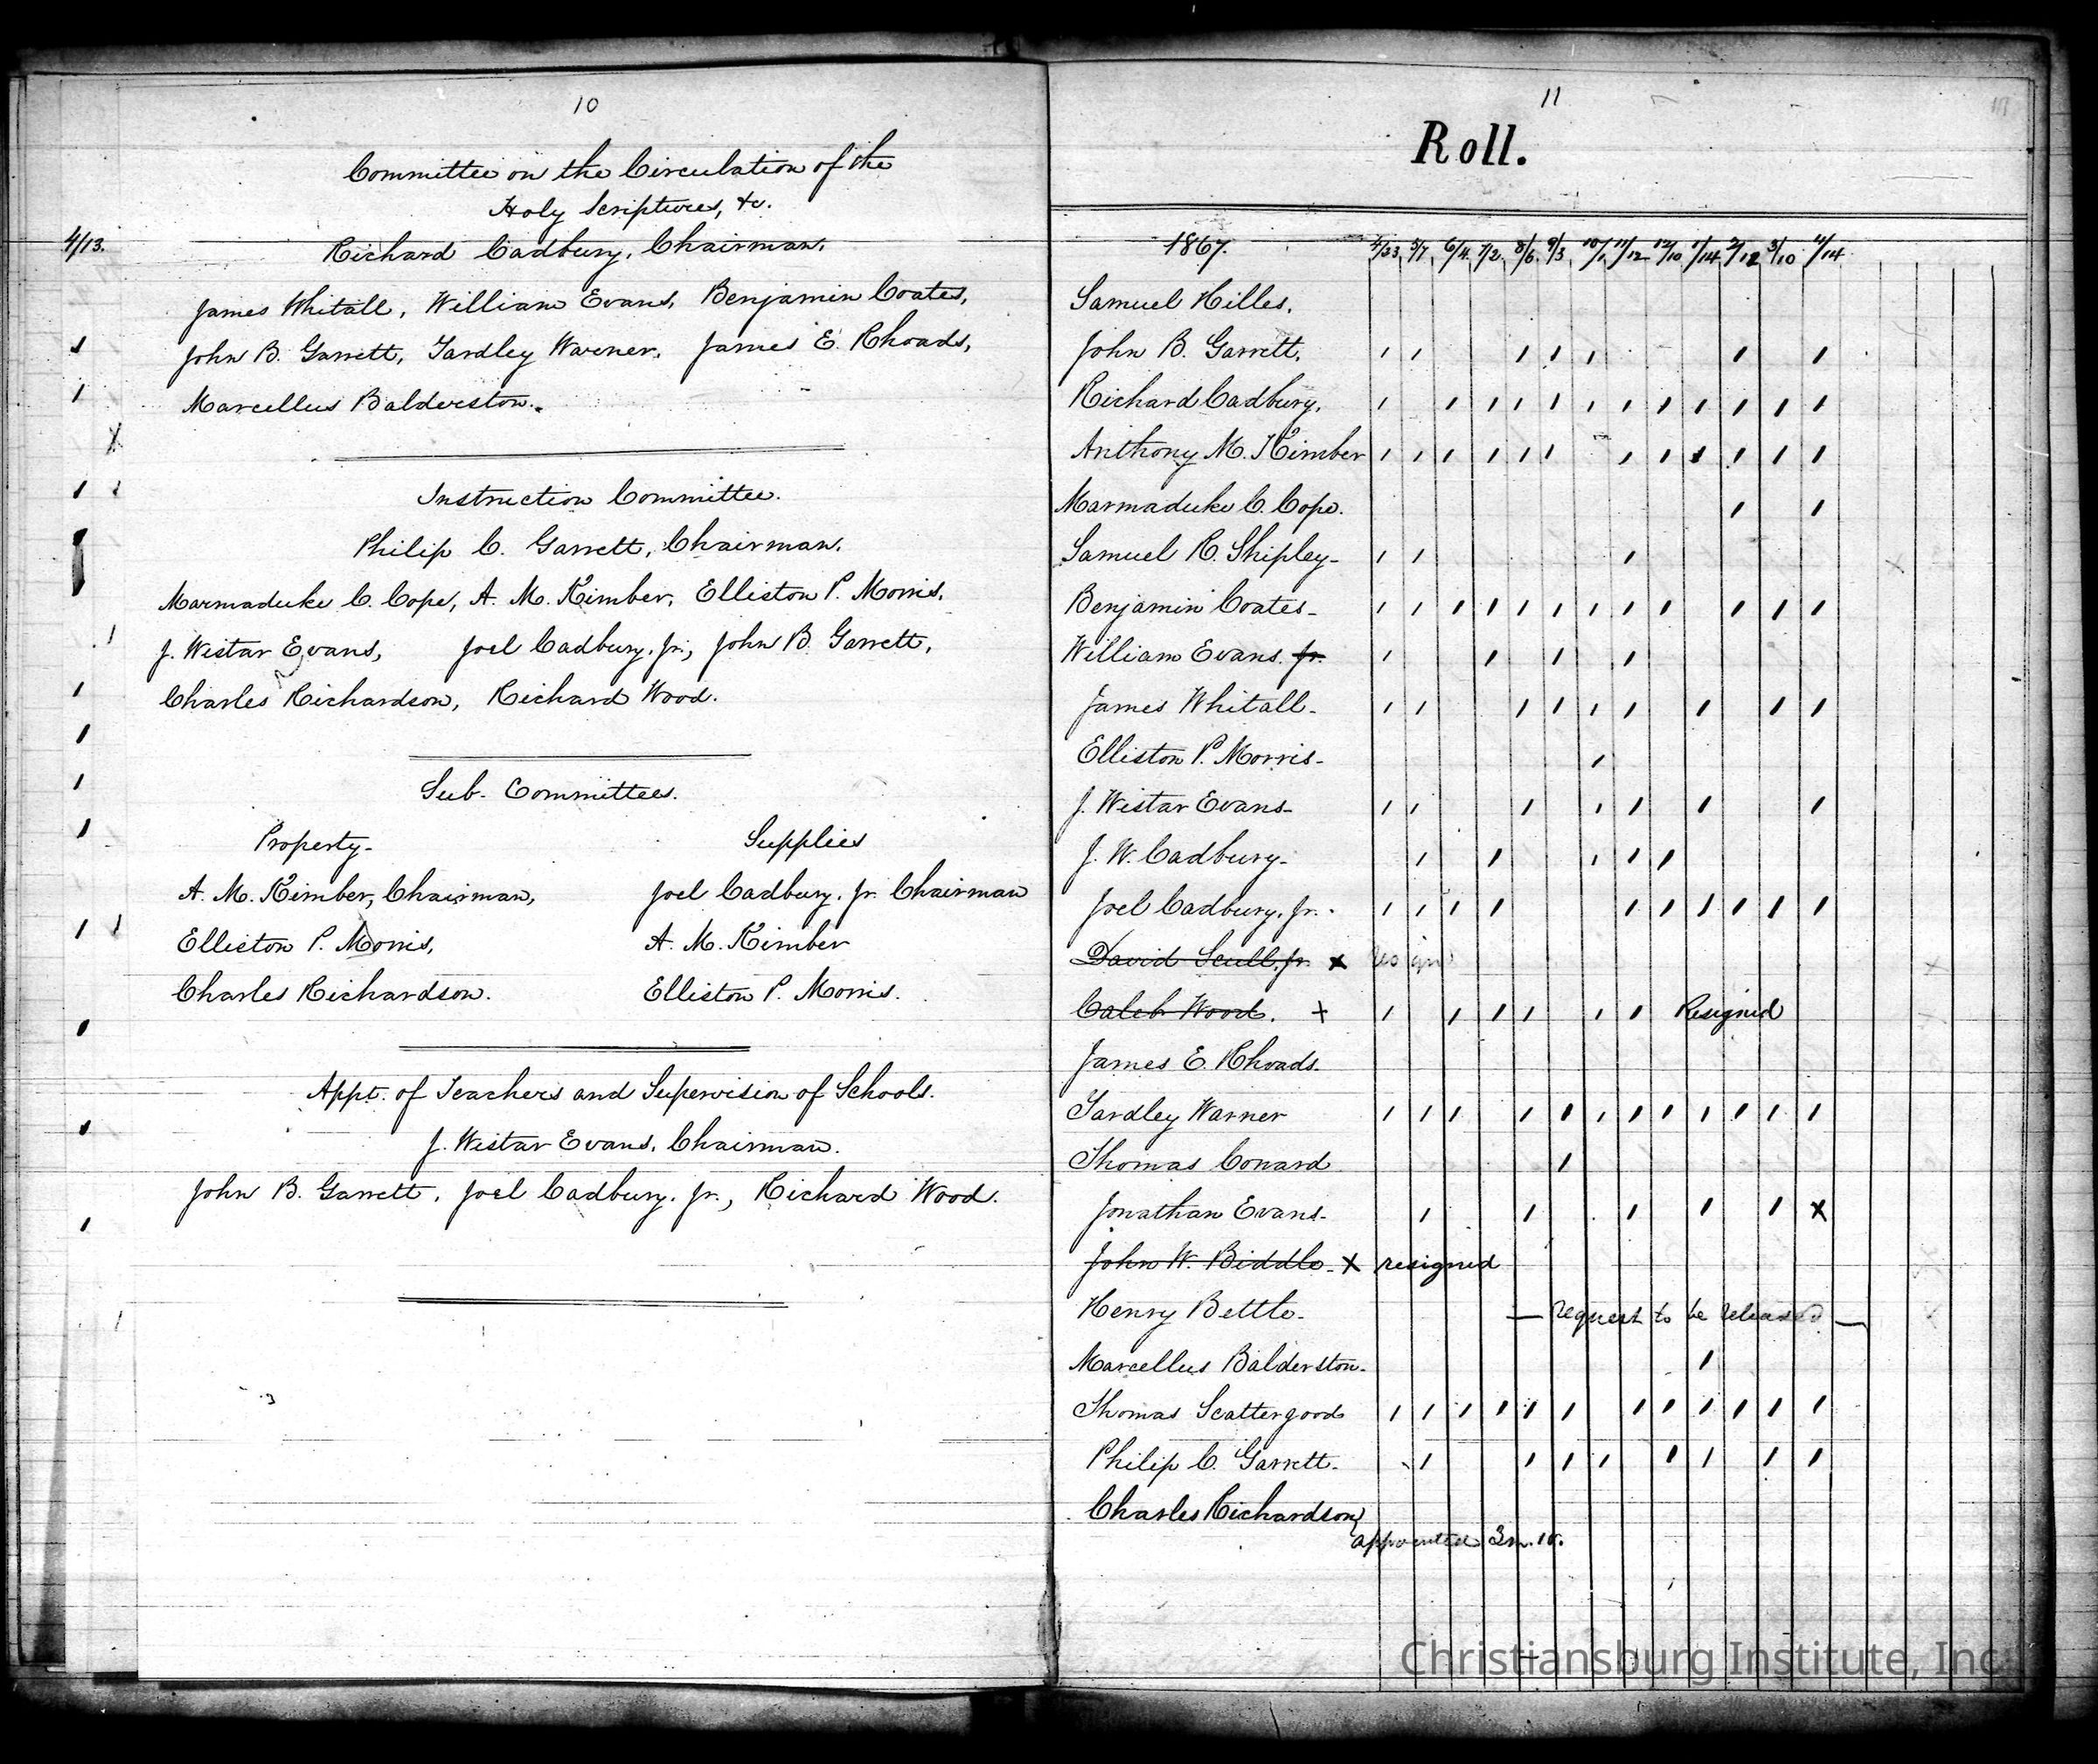 10
Committee on the Circulation of the
Holy Scriptures, &c.
4/13.
Richard Cadbury, Chairman,
James Whitall, William Evans, Benjamin Coates,
John B. Garrett, Yardley Warner, James E. Rhoads,
Marcellus Balderston.
Instruction Committee.
Philip C. Garrett, Chairman.
Marmaduke C. Cope, A. M. Kimber, Elliston P. Morris,
J. Wistar Evans, Joel Cadbury, Jr., John B Garrett,
Charles Richardson, Richard Wood.
Sub- Committees.
Property- Supplies
A. M. Kimber, Chairman, Joel Cadbury, Jr. Chairman
Elliston P. Morris, A. M. Kimber
Charles Richardson. Elliston P. Morris.
Appt. of Teachers and Supervision of Schools.
J. Wistar Evans, Chairman.
John B. Garrett, Joel Cadbury, Jr., Richard Wood.
11
Roll.
1867. 4/23 5/7 6/4 7/2 8/6 9/3 10/1 11/12 12/10 1/14 2/12 3/10 4/14
Samuel Hilles.
John B. Garrett.
Richard Cadbury.
Anthony M. Kimber
Marmaduke C. Cope.
Samuel R. Shipley-
Benjamin Coates-
William Evans. Jr.
James Whitall-
Elliston P. Morris-
J. Wistar Evans-
J. W. Cadbury-
Joel Cadbury, Jr.
David Scull, Jr. x resign
Caleb Wood. x Resigned
James E. Rhoads.
Yardley Warner
Thomas Conard
Jonathan Evans- x
John W. Biddle- x resigned
Henry Bettle- — request to be released —
Marcellus Balderston-
Thomas Scattergood
Philip C. Garrett-
Charles Richardson
appointed 3m. 10.
Christiansburg Institute, Inc.